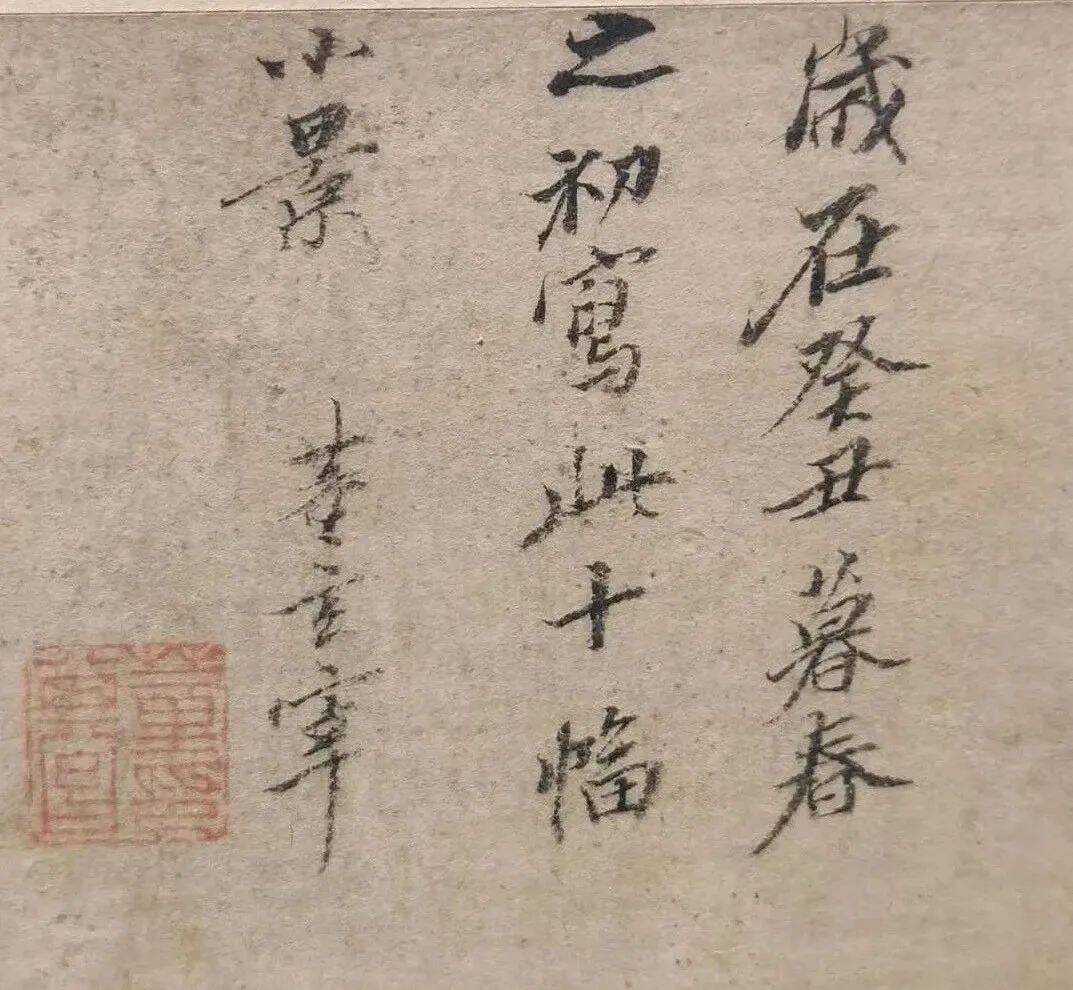 歲在癸丑暮春
之初寫此十幅
小景 李玄宰